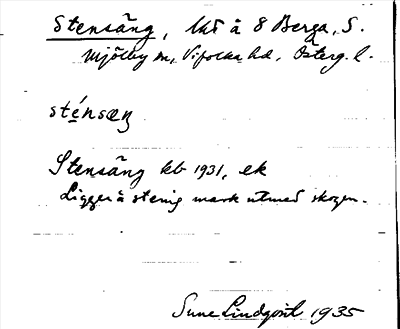 Stensäng, lht å 8 Berga, S.
Mjölby sn, Vifolka hd, Österg. l.
sténsæŋ
Stensäng kb 1931, ek
Ligger å stenig mark utmed skogen.
Sune Lindqvist 1935